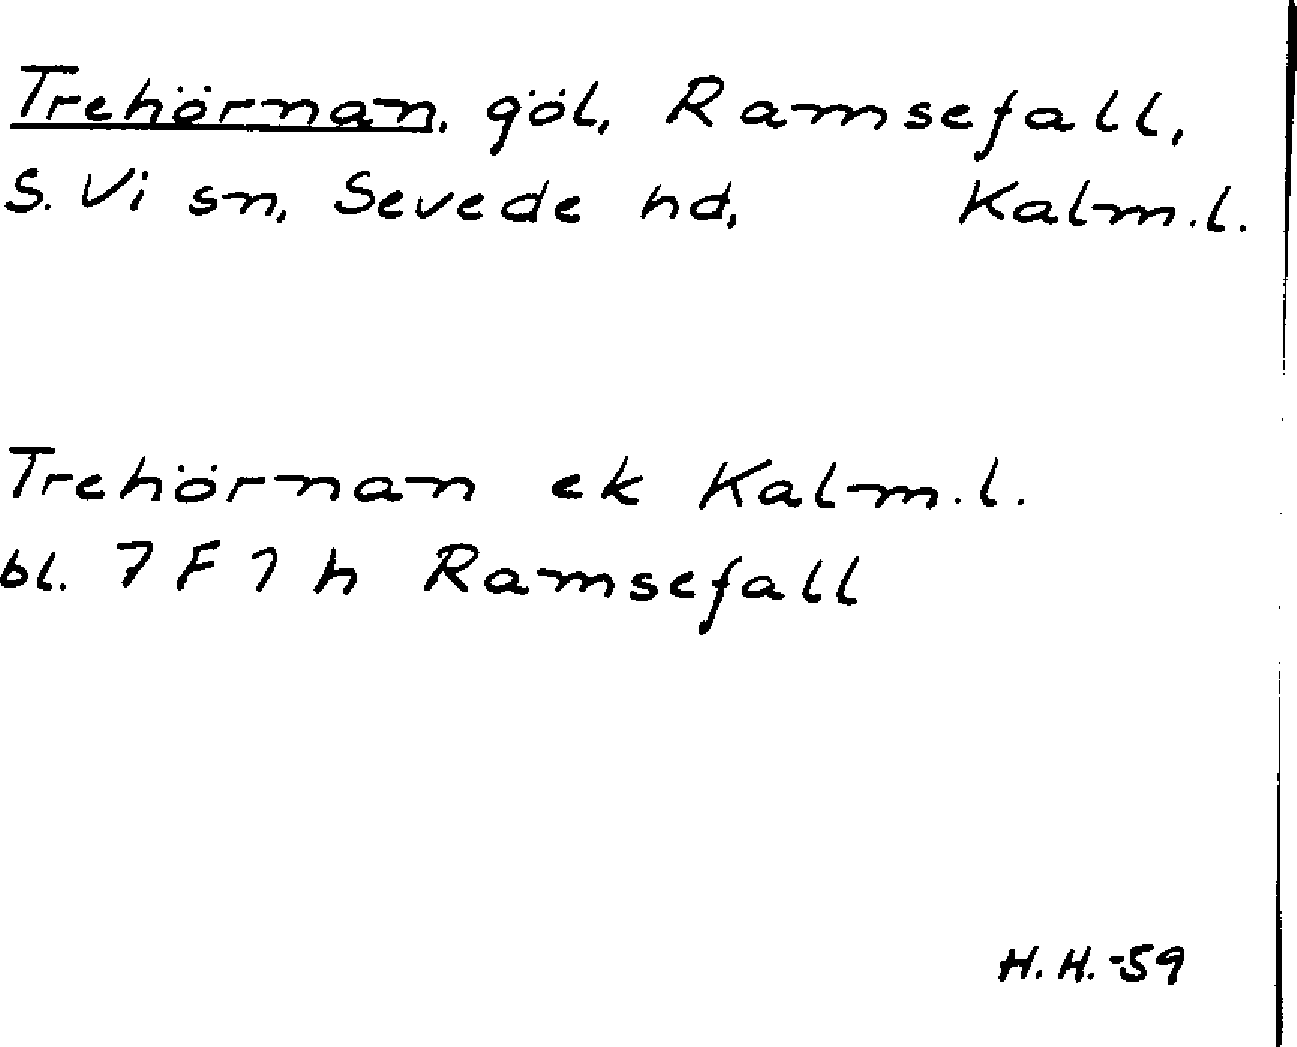 Trehörnan, göl, Ramsefall,
S. Vi sn, Sevede hd, Kalm.l.
Trehörnan ek Kalm.l.
bl. 7 F 1 h Ramsefall
H.H.-59